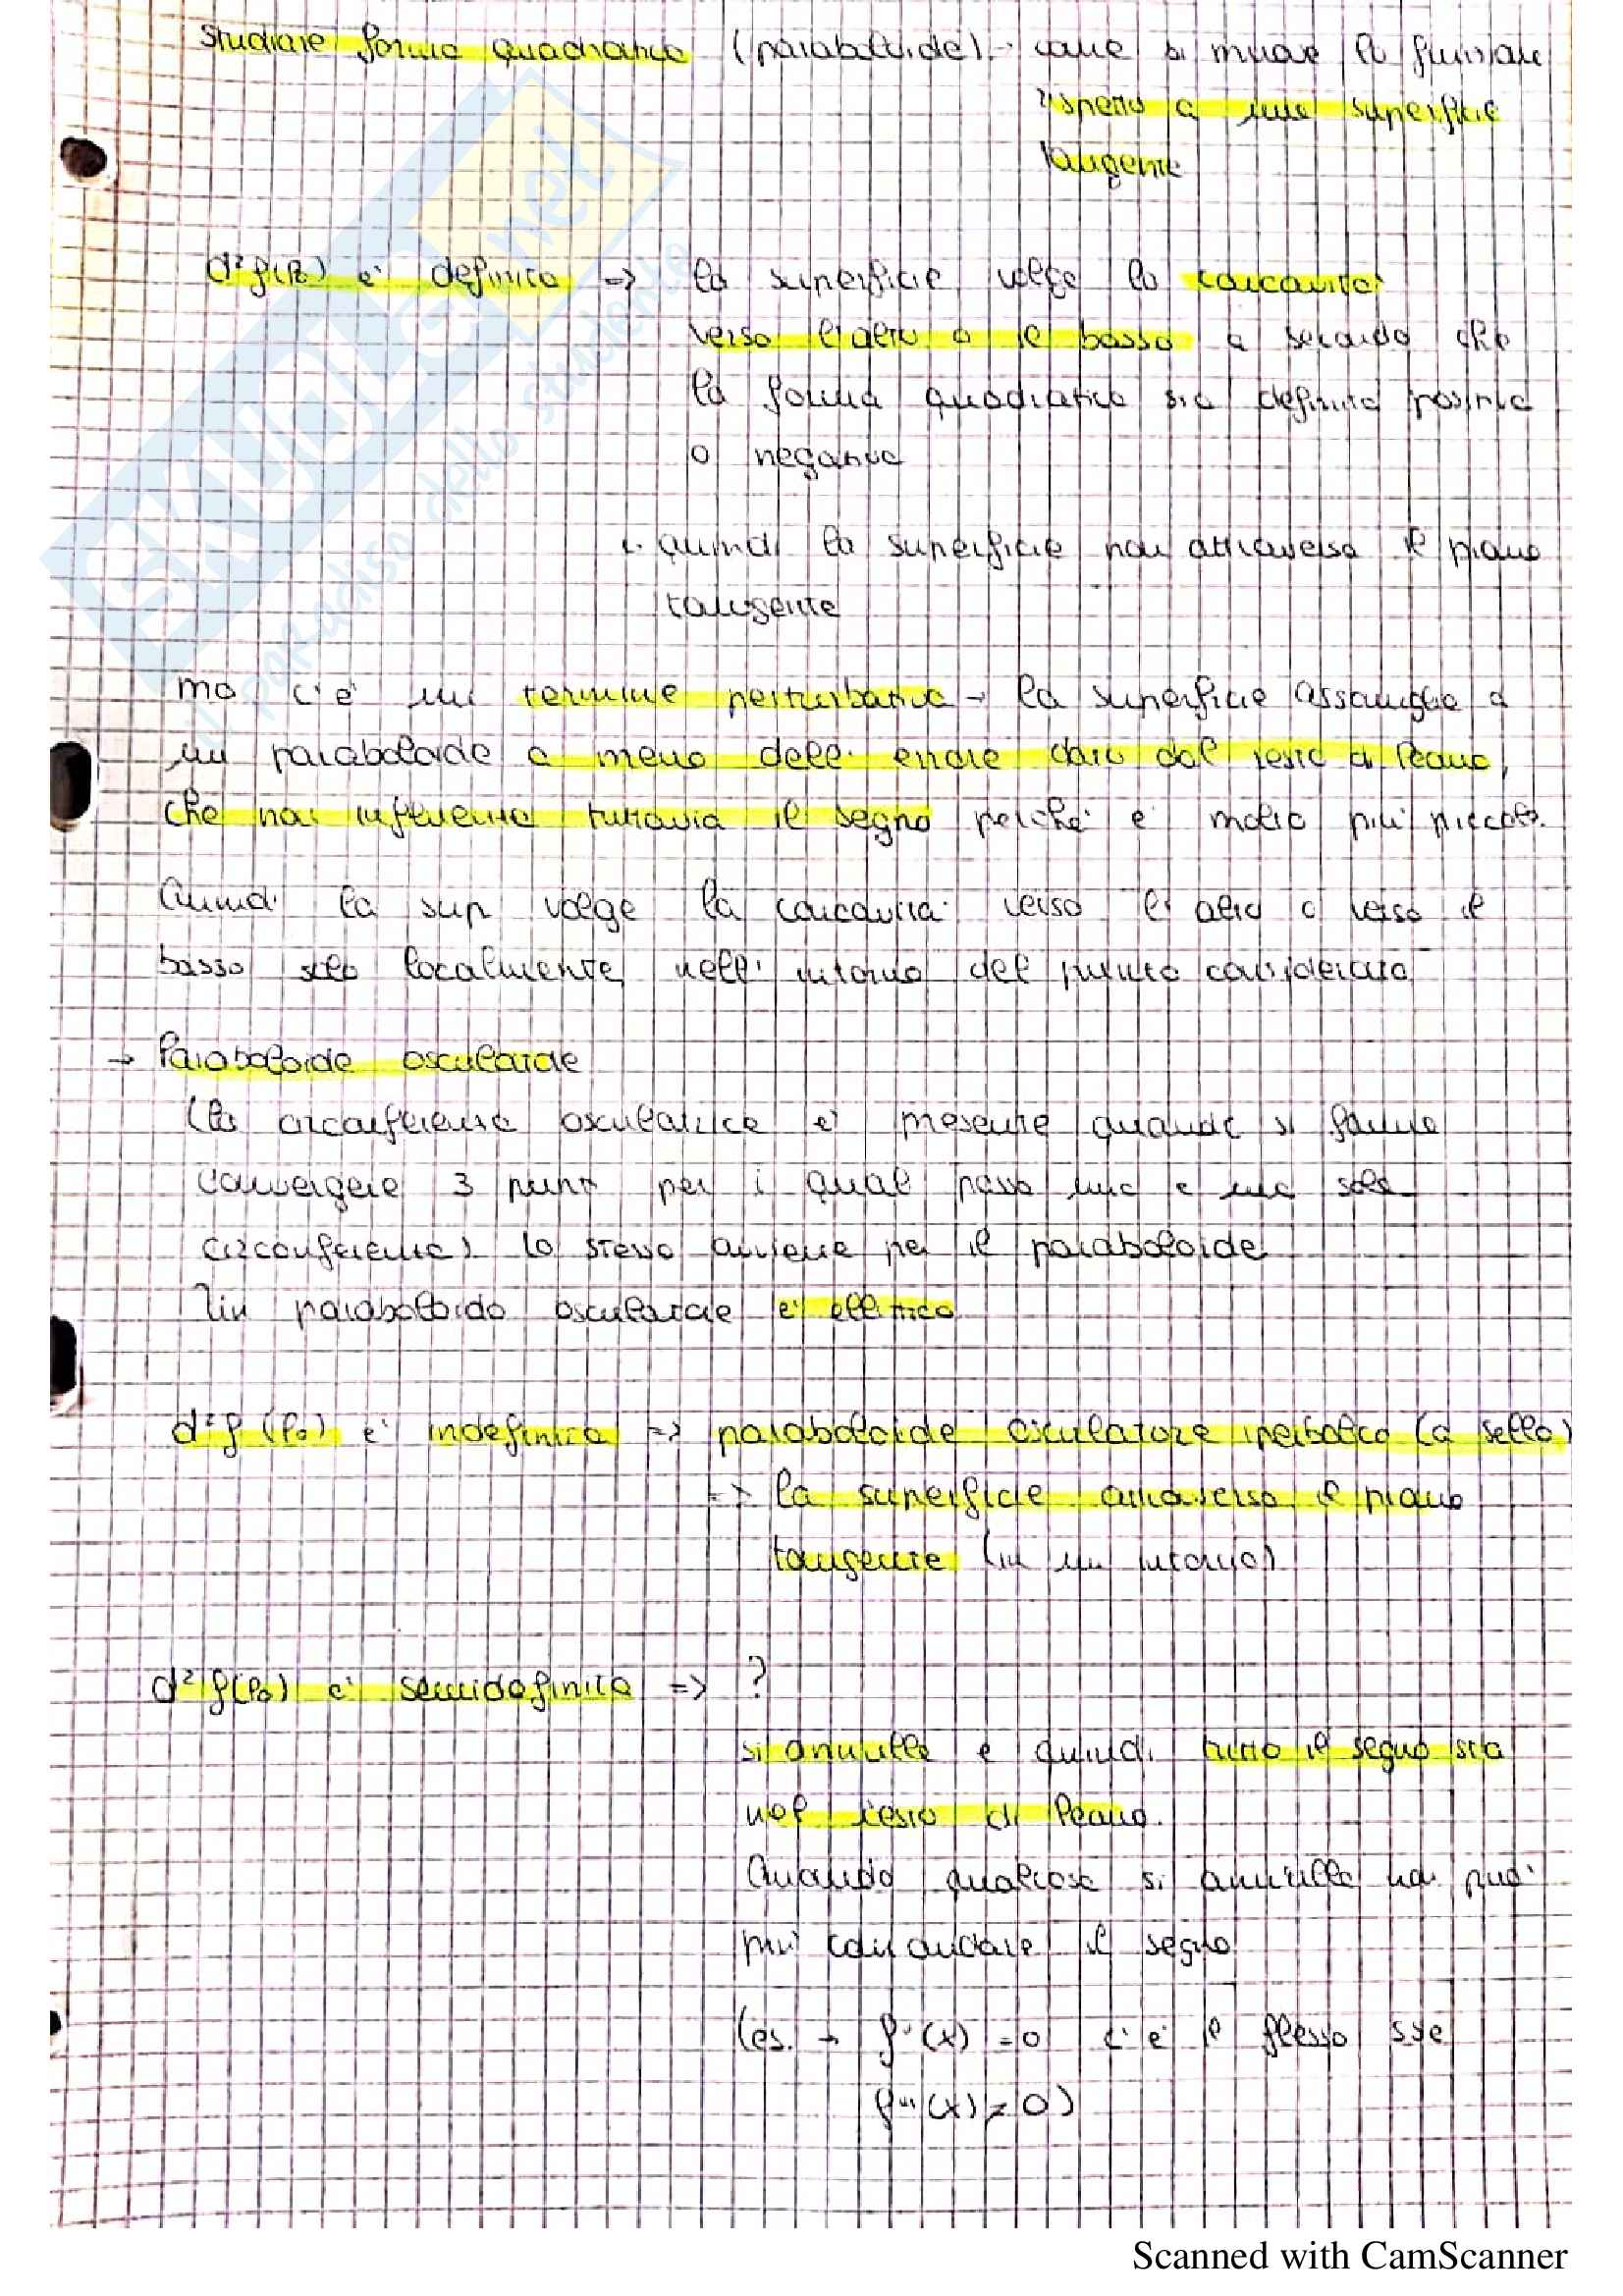 Studiare forma quadratica (paraboloide) → come si muove la funzione
rispetto a una superficie
tangente
d²f(P₀) è definita => la superficie volge la concavità
verso l'alto o il basso a seconda che
la forma quadratica sia definita positiva
o negativa
quindi la superficie non attraversa il piano
tangente
ma c'è un termine perturbativo → la superficie assomiglia a
un paraboloide a meno dell'errore dato dal resto di Peano,
che non influenza tuttavia il segno perché è molto più piccolo.
Quindi la sup volge la concavità verso l'alto o verso il
basso solo localmente, nell'intorno del punto considerato
→ Paraboloide osculatore
(la circonferenza osculatrice è presente quando si fanno
convergere 3 punti per i quali passa una e una sola
circonferenza) lo stesso avviene per il paraboloide
Un paraboloide osculatore è ellittico
d²f(P₀) è indefinita => paraboloide osculatore iperbolico (a sella)
=> la superficie attraversa il piano
tangente (in un intorno)
d²f(P₀) è semidefinita => ?
si annulla e quindi tutto il segno sta
nel resto di Peano.
Quando qualcosa si annulla non può
più comandare il segno
(es. → f''(x) = 0 c'è il flesso sse
f'''(x) ≠ 0)
SKUOLA.net
il paradiso dello studente
Scanned with CamScanner